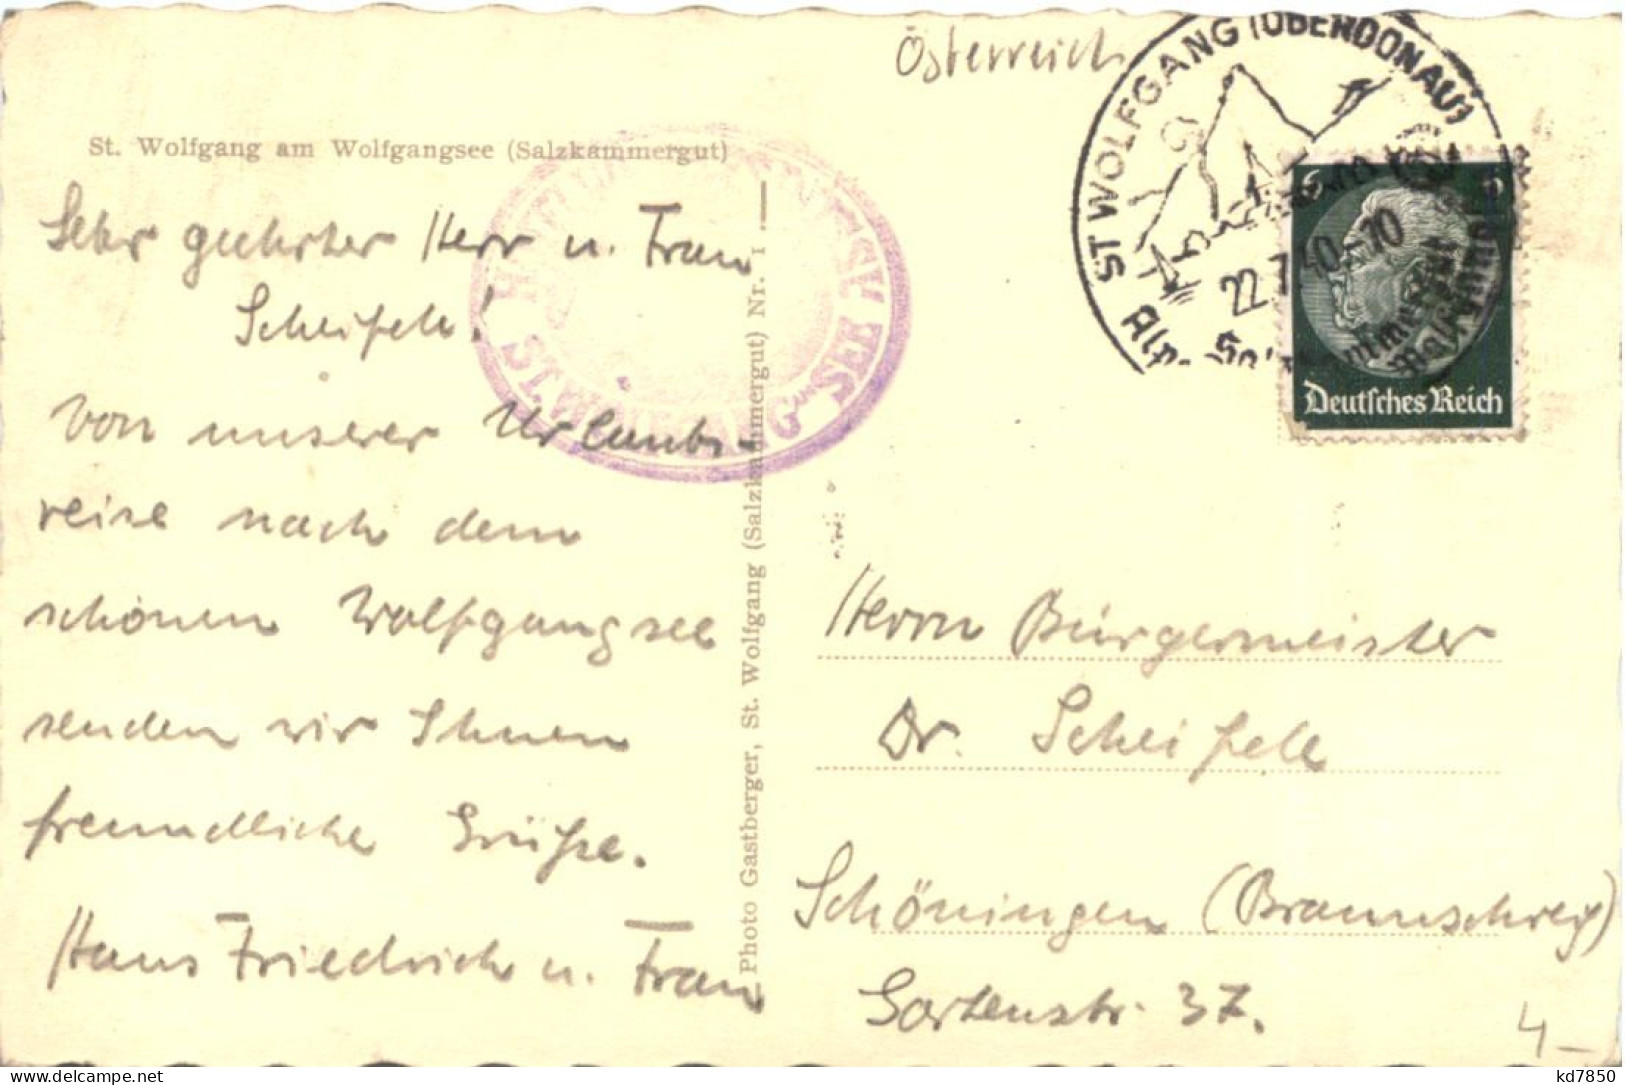 Österreich
ST WOLFGANG (OBERDONAU)
22.7.40-10
6 6
Deutsches Reich
St. Wolfgang am Wolfgangsee (Salzkammergut)
ST. WOLFGANG-SEE
Sehr geehrter Herr u. Frau
Scheifele!
Von unserer Urlaubs-
reise nach dem
schönen Wolfgangsee
senden wir Ihnen
freundliche Grüße.
Hans Friedrich u. Frau
Photo Gastberger, St. Wolfgang (Salzkammergut) Nr. 1
Herrn Bürgermeister
Dr. Scheifele
Schöningen (Braunschweig)
Gartenstr. 37.
4-
kd7850